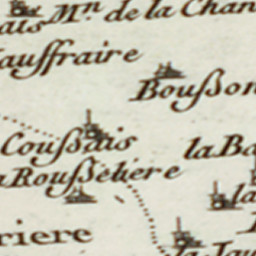 ais Mⁿ de la Chan
auſfraire
Bouſson
Couſsais
la Ba
a Rouſseliere
la
riere
la Jau